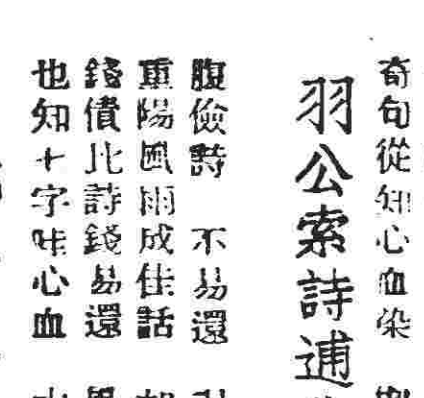 奇句從知心血染
羽公索詩逋
腹儉詩 不易還
重陽風雨成佳話
錢債比詩錢易還
也知七字呕心血